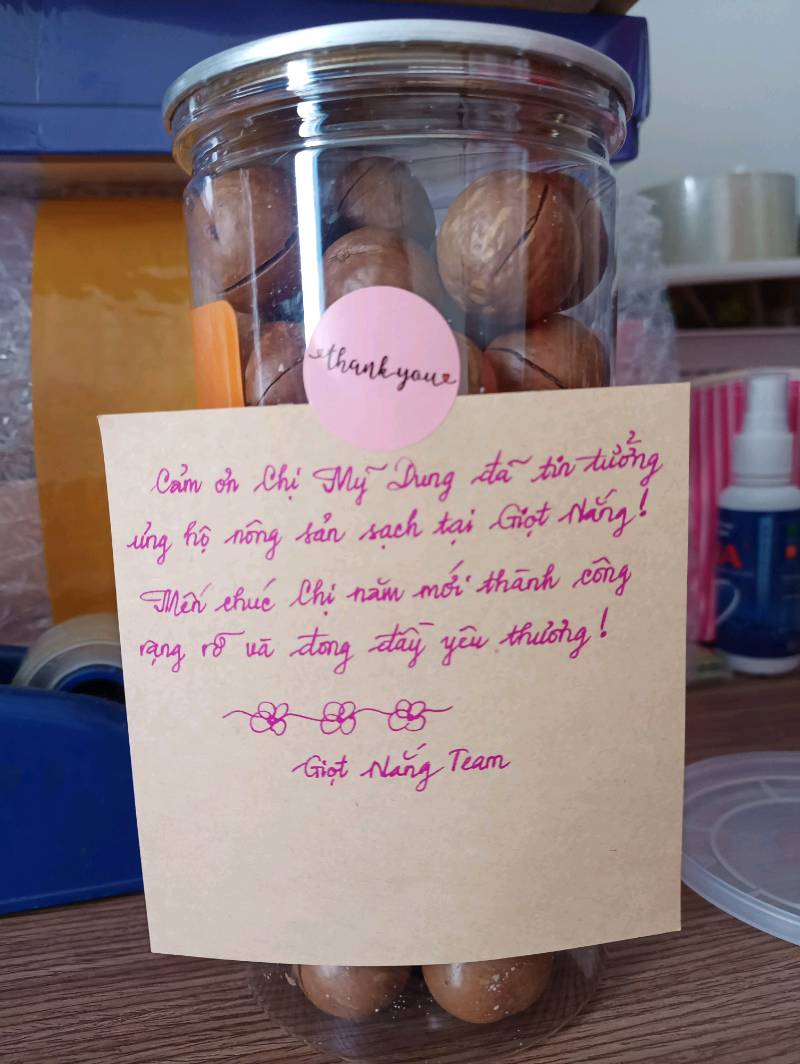 thank you
Cảm ơn Chị Mỹ Dung đã tin tưởng
ủng hộ nông sản sạch tại Giọt Nắng!
Mến chúc Chị năm mới thành công
rạng rỡ và đong đầy yêu thương!
Giọt Nắng Team